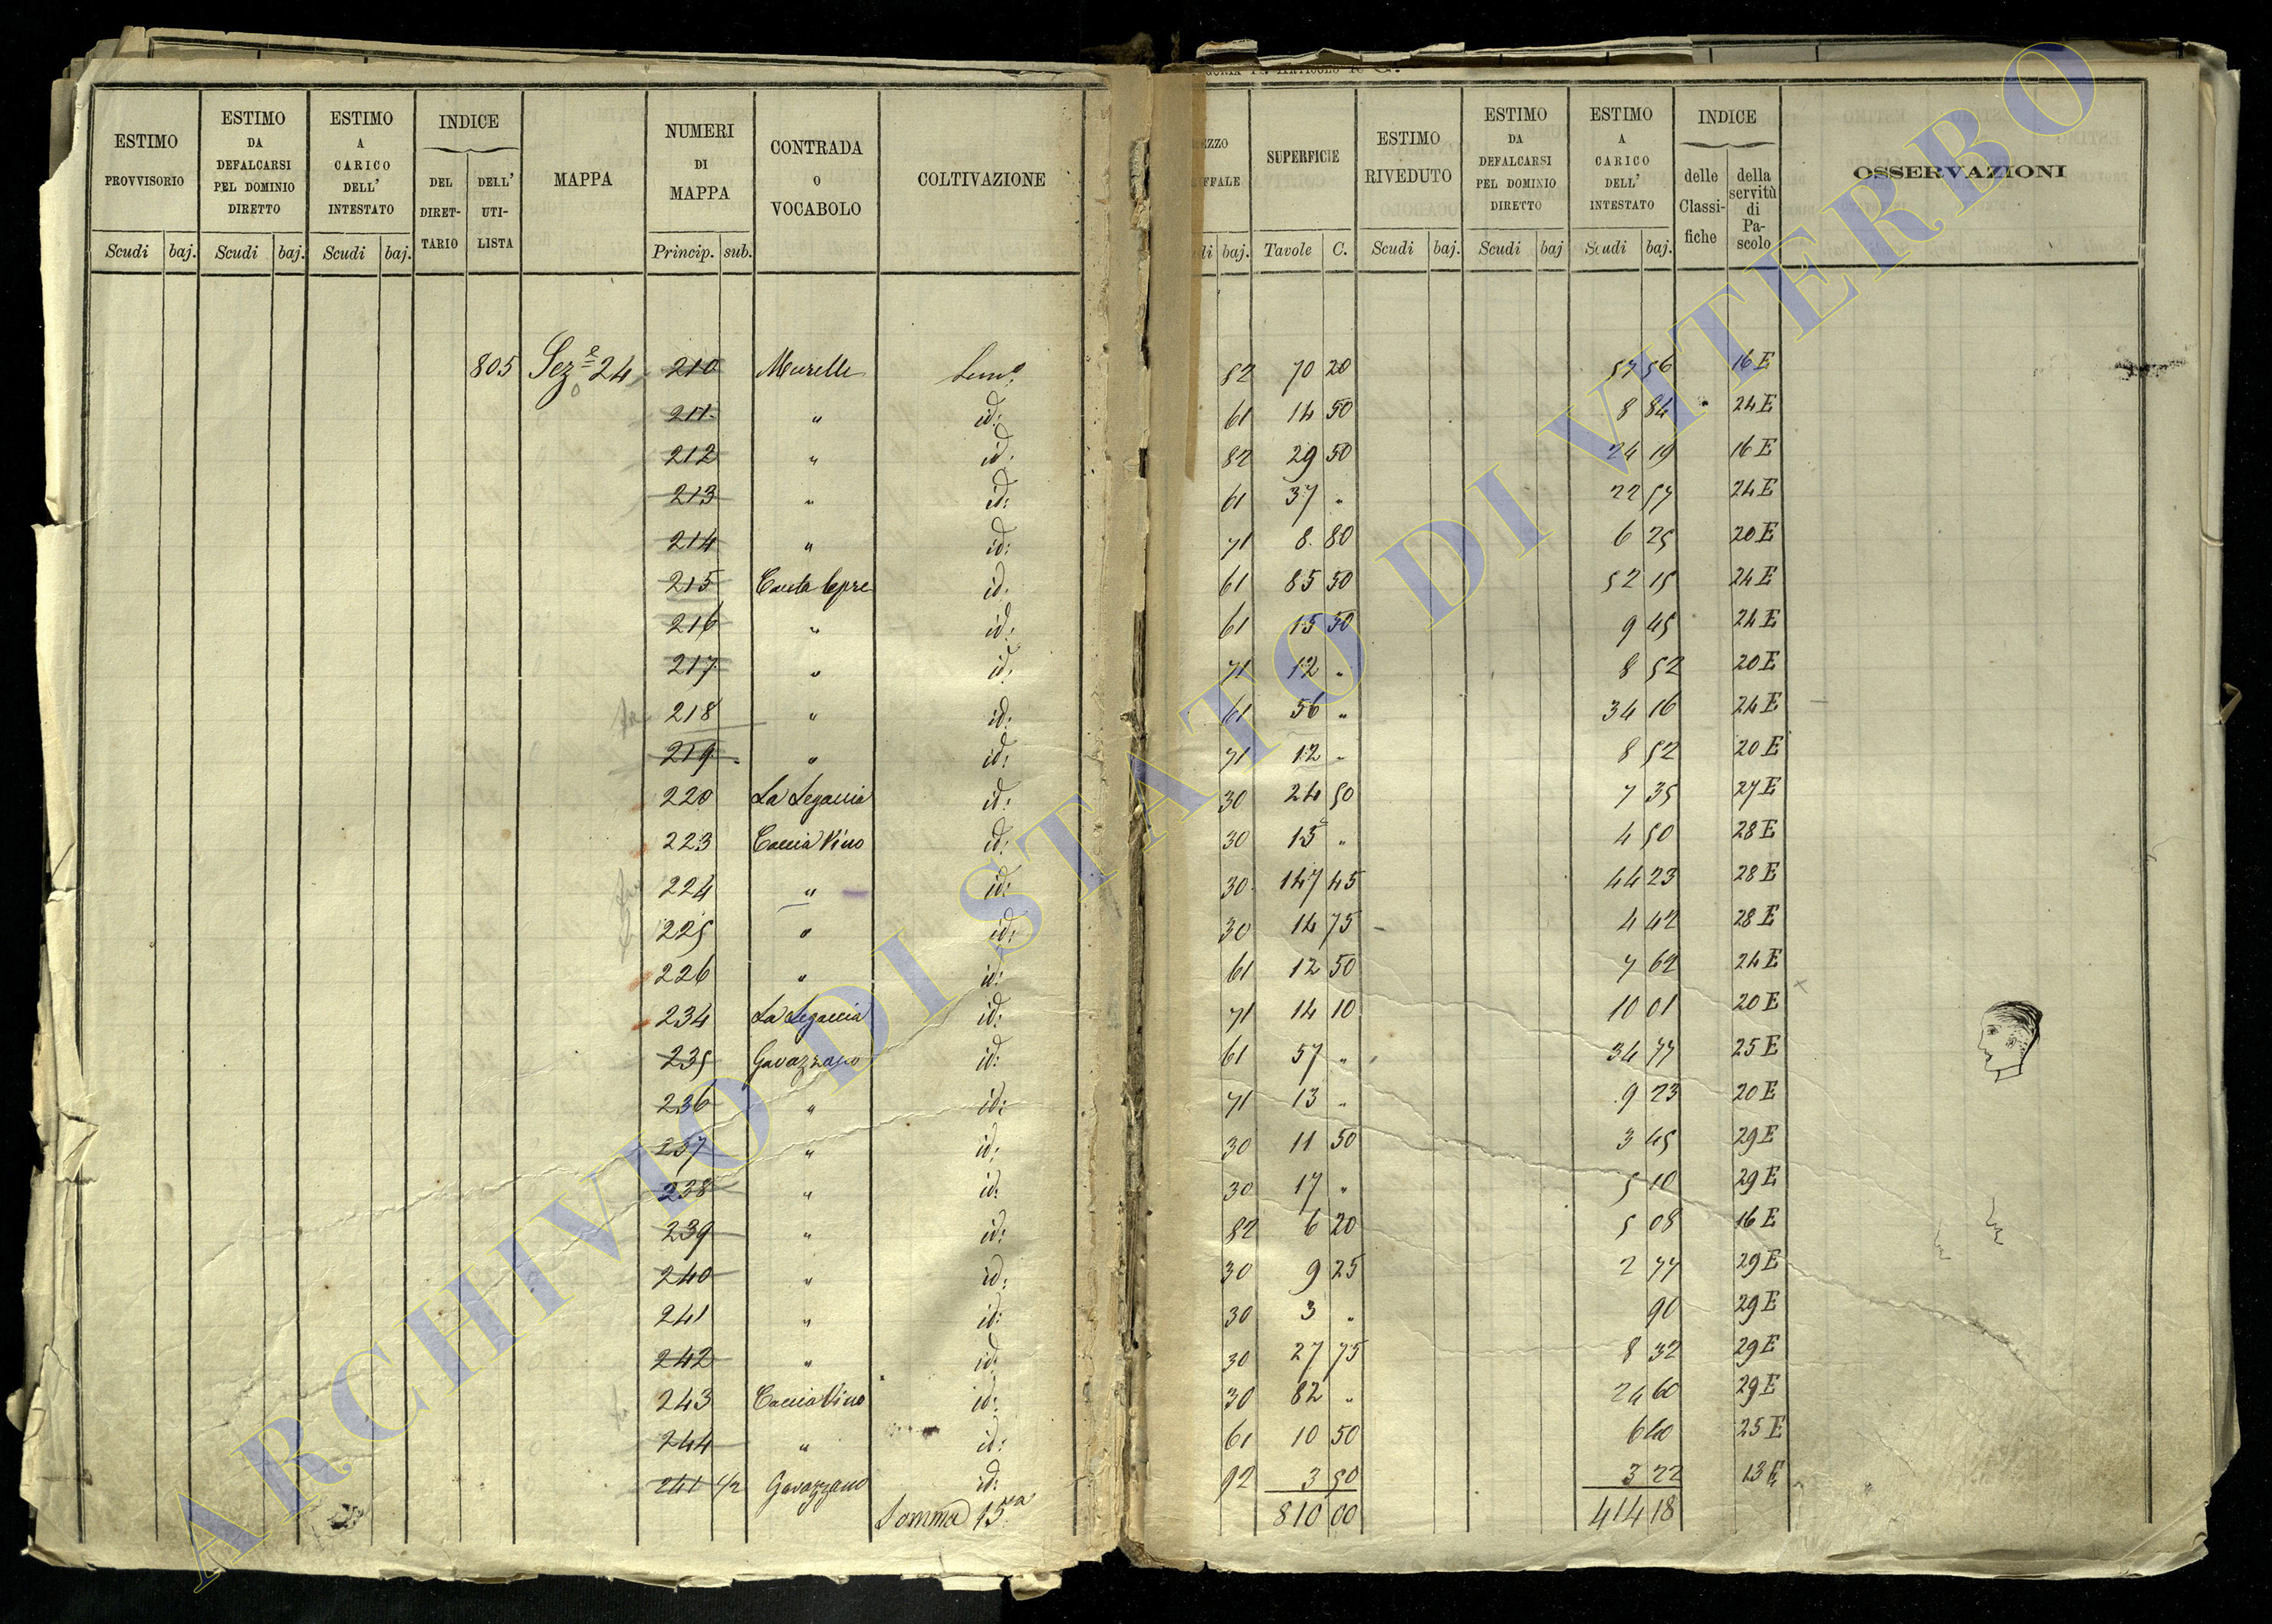 ESTIMO PROVVISORIO
Scudi baj.
ESTIMO DA DEFALCARSI PEL DOMINIO DIRETTO
Scudi baj.
ESTIMO A CARICO DELL' INTESTATO
Scudi baj.
INDICE
DEL DIRETTARIO
DELL' UTILISTA
MAPPA
NUMERI DI MAPPA
Princip. sub.
CONTRADA O VOCABOLO
COLTIVAZIONE
baj.
SUPERFICIE
Tavole C.
ESTIMO RIVEDUTO
Scudi baj.
ESTIMO DA DEFALCARSI PEL DOMINIO DIRETTO
Scudi baj
ESTIMO A CARICO DELL' INTESTATO
Scudi baj.
INDICE
delle Classifiche
della servitù di Pascolo
OSSERVAZIONI
805 Sez.e 24 210 Murelle Semo. 82 70 20 57 56 16 E
211 " id: 61 14 50 8 84 24 E
212 " id: 82 29 50 24 19 16 E
213 " id: 61 37 " 22 57 24 E
214 " id: 71 8. 80 6 25 20 E
215 id: 61 85 50 52 15 24 E
216 " id: 61 15 50 9 45 24 E
217 " id: 71 12 " 8 52 20 E
218 " id: 61 56 " 34 16 24 E
219 " id: 71 12 " 8 52 20 E
220 La Legaccia id: 30 24 50 7 35 27 E
223 Caccia Vino id: 30 15 " 4 50 28 E
224 " id: 30 147 45 44 23 28 E
225 " id: 30 14 75 4 42 28 E
226 " id: 61 12 50 7 62 24 E
234 La Legaccia id: 71 14 10 10 01 20 E
235 Gavazzano id: 61 57 " 34 77 25 E
236 " id: 71 13 " 9 23 20 E
237 " id: 30 11 50 3 45 29 E
238 " id: 30 17 " 5 10 29 E
239 " id: 82 6 20 5 08 16 E
240 " id: 30 9 25 2 77 29 E
241 " id: 30 3 " 90 29 E
242 " id: 30 27 75 8 32 29 E
243 Caccia Vino id: 30 82 " 24 60 29 E
244 " id: 61 10 50 6 40 25 E
241 1/2 Gavazzano id: 92 3 50 3 22 13 E
Somma 15a 810 00 414 18
ARCHIVIO DI STATO DI VITERBO